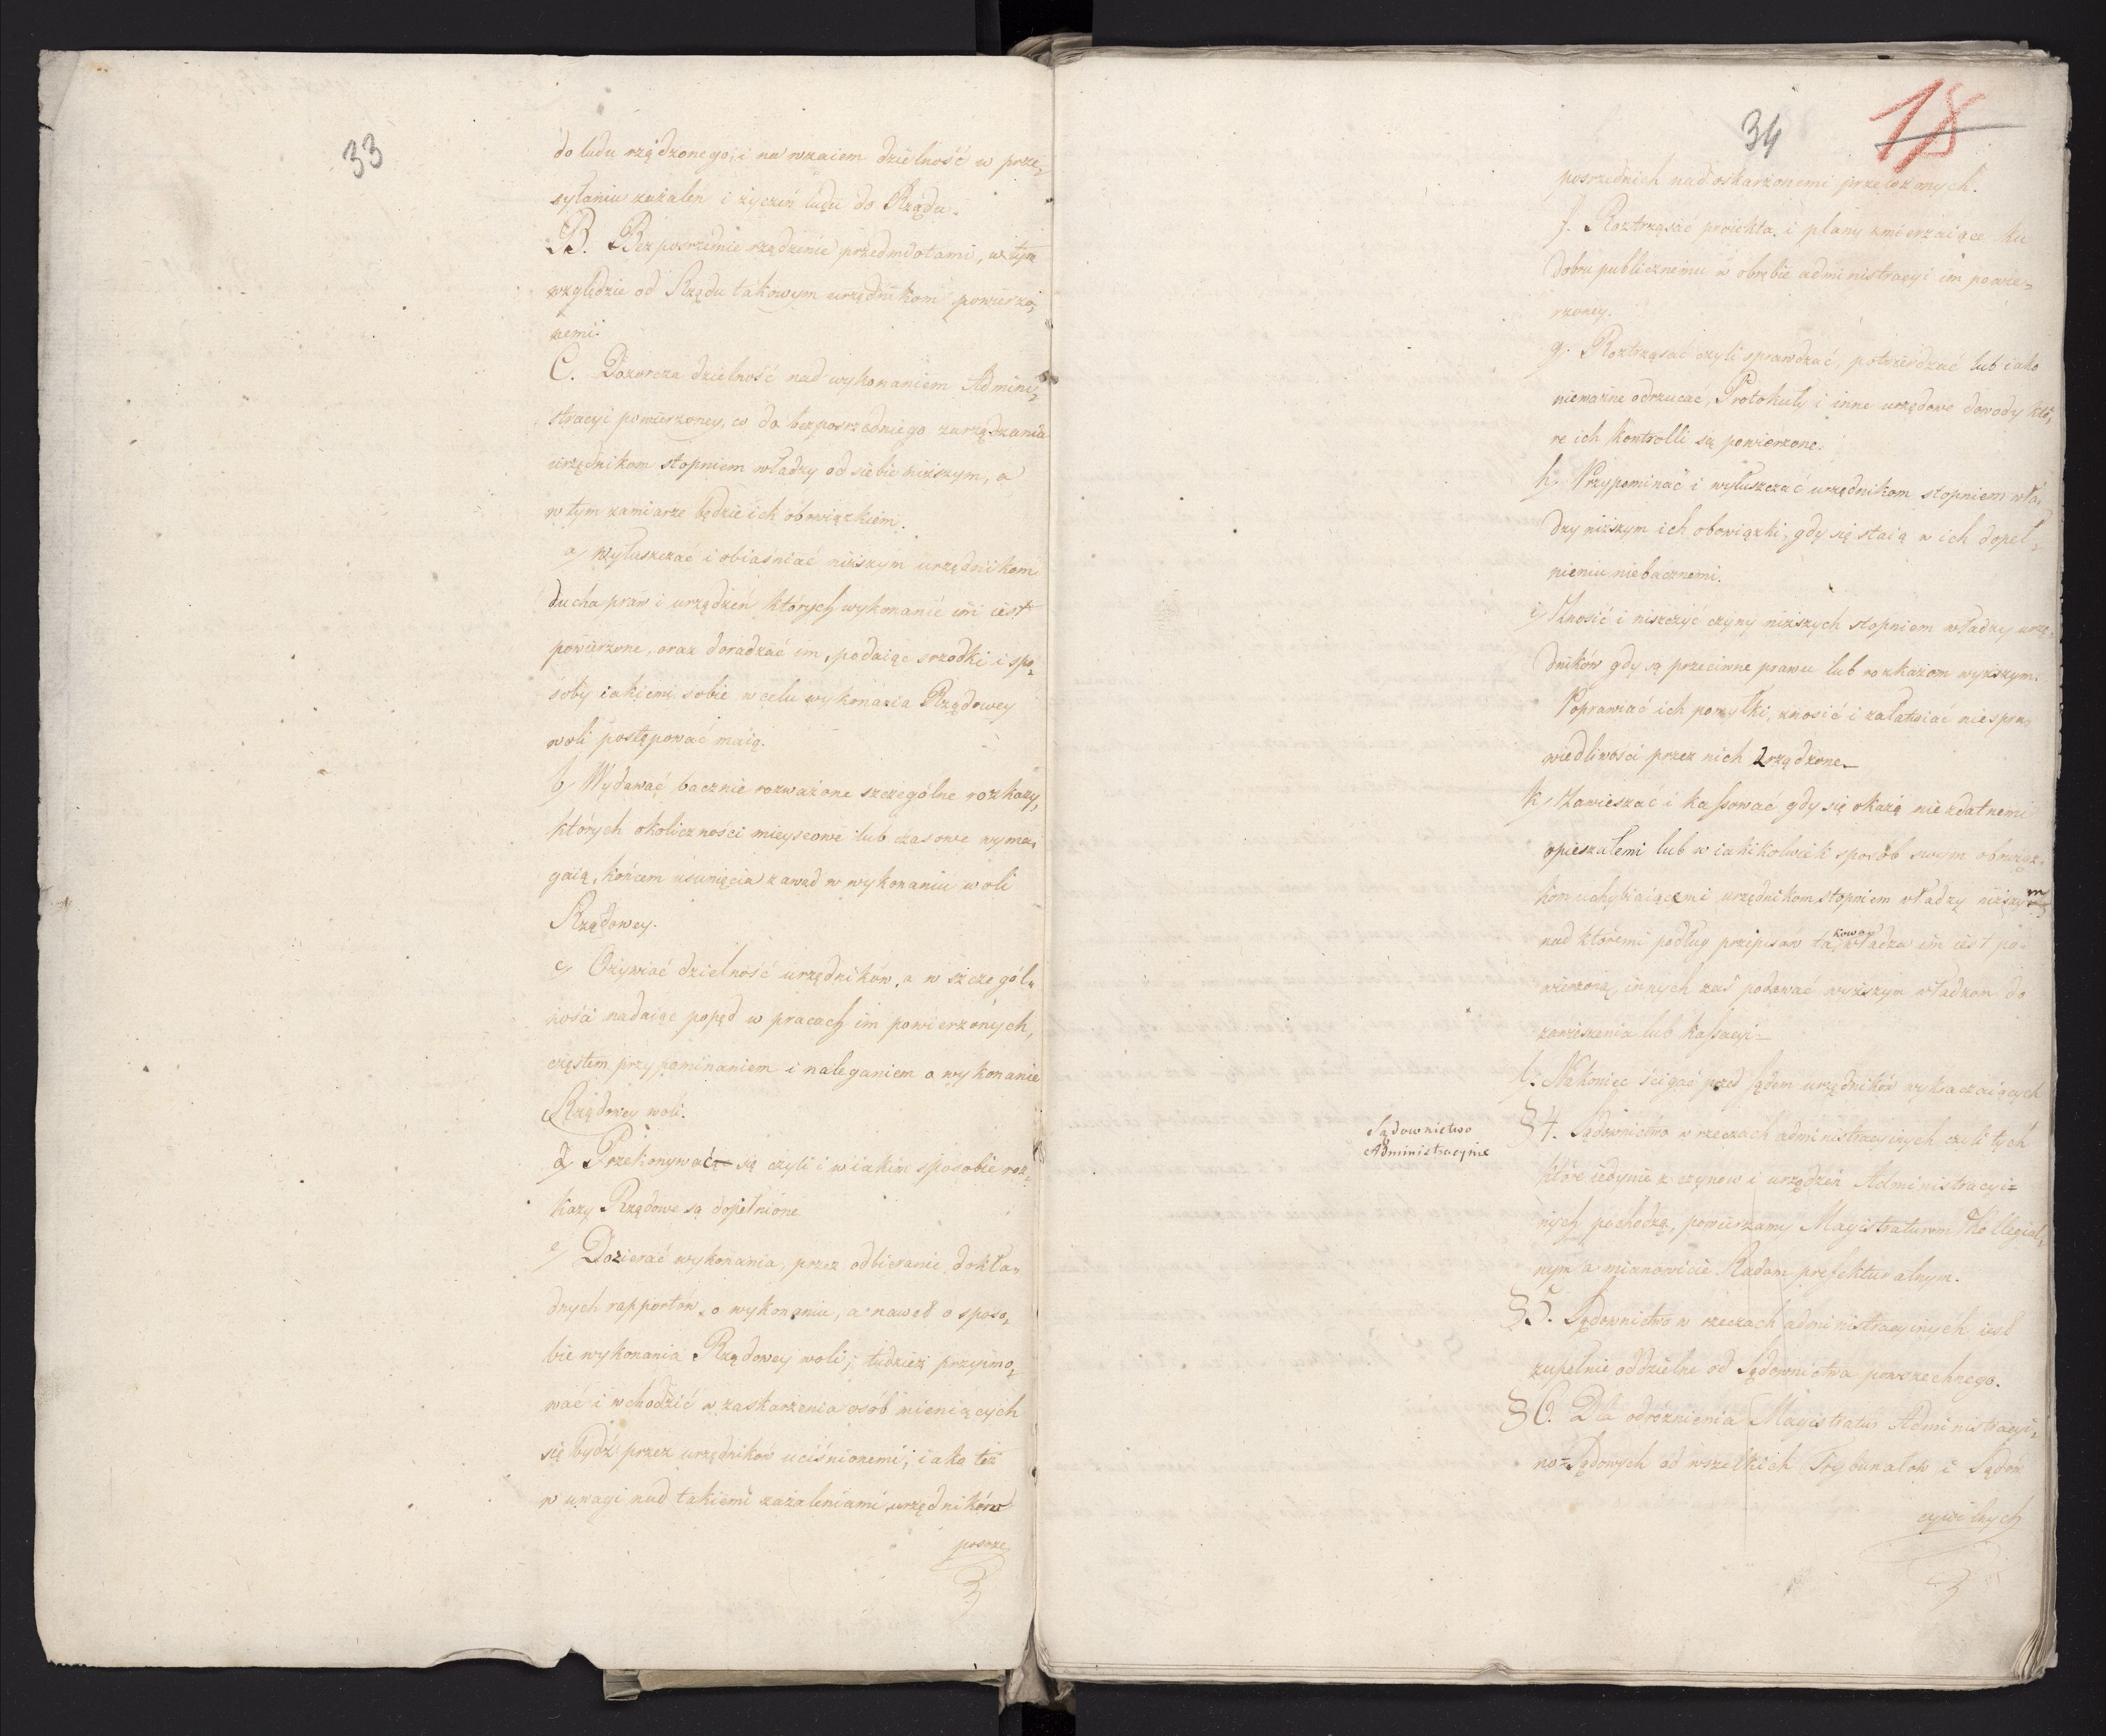 33
do ludu rządzonego; i na wzaiem dzielność w prze„
syłaniu zażaleń i życzeń ludu do Rządu.
B. Bezposrzednie rządzenie przedmiotami, w tym
względzie od Rządu takowym urzędnikom powierzo„
nemi.
C. Dozorcza dzielność nad wykonaniem Admini„
stracyi powierzoney, co do bezposrzedniego zarządzania
urzędnikom stopniem władzy od siebie niższym, a
w tym zamiarze będzie ich obowiązkiem.
a) Wyłuszczać i obiaśniać niższym urzędnikom
ducha praw i urządzeń których wykonanie im iest
powierzone, oraz doradzać im, podaiąc srzodki i spo„
soby iakiemi sobie w celu wykonania Rządowey
woli postępować maią.
b) Wydawać bacznie rozważone szczególne rozkazy,
których okoliczności mieyscowe lub czasowe wyma„
gaią, końcem usunięcia zawad w wykonaniu woli
Rządowey.
c) Ożywiać dzielność urzędników, a w szczegól„
ności nadaiąc popęd w pracach im powierzonych,
częstem przypominaniem i naleganiem o wykonanie
Rządowey woli.
d) Przekonywać się czyli i w iakim sposobie roz„
kazy Rządowe są dopełnione
e) Dozierać wykonania, przez odbieranie dokła„
dnych rapportów o wykonaniu, a nawet o sposo„
bie wykonania Rządowey woli; tudzież przyimo„
wać i wchodzić w zaskarżenia osób mieniących
się bydź przez urzędników uciśnionemi; iako też
w uwagi nad takiemi zażaleniami urzędników
posrze
34
18
posrzednich nad oskarżonemi przełożonych.
f. Roztrząsać proiekta i plany zmierzaiące ku
dobru publicznemu w obrębie administracyi im powie=
rzoney.
g. Roztrząsać czyli sprawdzać, potwierdzać lub iako
nieważne odrzucać, Protokuły i inne urzędowe dowody któ„
re ich kontrolli są powierzone.
h) Przypominać i wyłuszczać urzędnikom stopniem wła„
dzy niższym ich obowiązki, gdy się staią w ich dopeł„
nieniu niebacznemi.
i) Znosić i niszczyć czyny niższych stopniem władzy urzę„
dników gdy są przeciwne prawu lub rozkazom wyższym.
Poprawiać ich pomyłki, znosić i załatwiać niespra„
wiedliwości przez nich zrządzone.
k) Zawieszać i kassować gdy się okażą niezdatnemi
opieszałemi lub w iakikolwiek sposób swym obowiąz„
kom uchybiaiącemi urzędnikom stopniem władzy niższym
nad któremi podług przepisów takowa władza im iest po„
wierzoną, innych zaś podawać wyższym władzom do
zawieszenia lub kassacyi
l. Nakoniec ścigać przed sądem urzędników wykraczaiących
Sądownictwo
Administracyine
§ 4. Sądownictwo w rzeczach administracyinych czyli tych
które iedynie z czynow i urządzeń Administracyi=
nych pochodzą, powierzamy Magistraturom Kollegial„
nym a mianowicie Radom prefekturalnym.
§ 5. Sądownictwo w rzeczach administracyinych iest
zupełnie oddzielne od Sądownictwa powszechnego.
§ 6. Dla odróżnienia Magistratur Administracyi„
no=Sądowych od wszelkich Trybunałow i Sądow
cywilnych